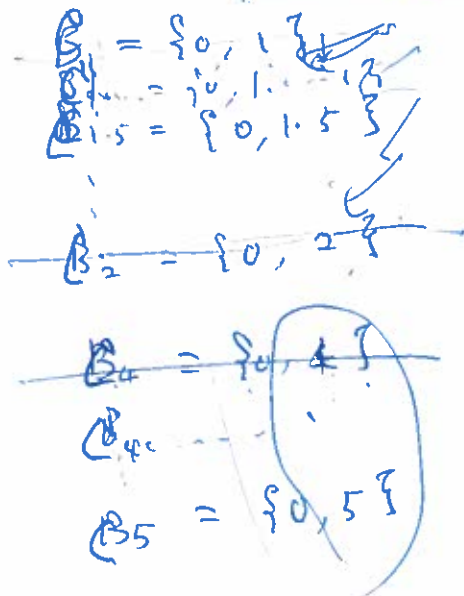 B = {0, 1}
B1. = {0, 1.
B1.5 = {0, 1.5}
B2 = {0, 2}
B4 = {0, 4}
B4.
B5 = {0, 5}